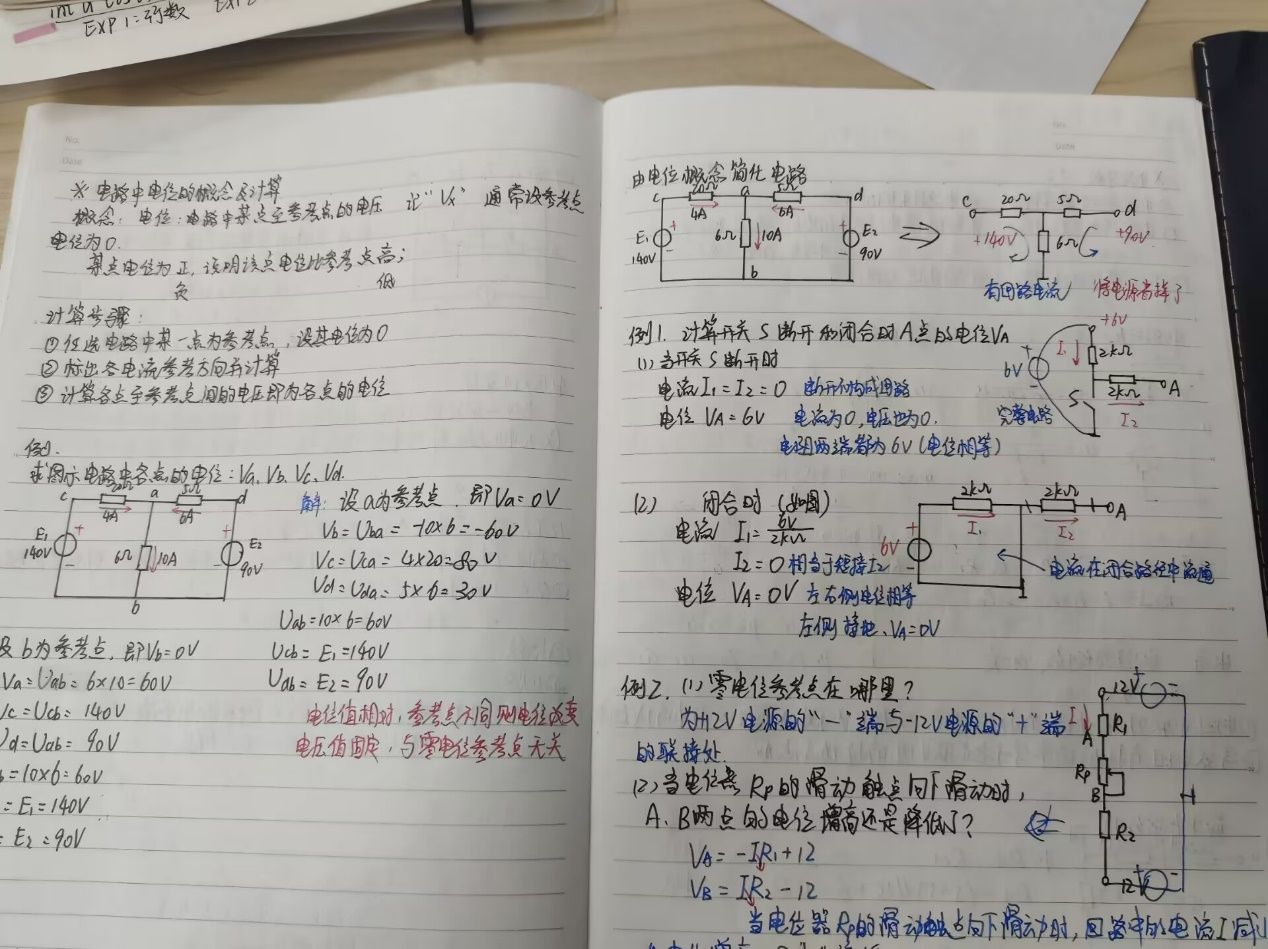 EXP1:函数
No.
Date
※ 电路中电位的概念及计算
概念: 电位:电路中某点至参考点的电压 记"Vx" 通常设参考点
电位为0.
某点电位为正,说明该点电位比参考点高;
负 低
计算步骤:
①任选电路中某一点为参考点,设其电位为0
②标出各电流参考方向并计算
③计算各点至参考点间的电压即为各点的电位
例.
求图示电路中各点的电位:Va、Vb、Vc、Vd.
c 20Ω a 5Ω d
4A 6A
E₁ 140V + − 6Ω 10A + − E₂ 90V
b
解: 设a为参考点, 即Va=0V
Vb=Uba=-10×6=-60V
Vc=Uca=4×20=80V
Vd=Uda=5×6=30V
Uab=10×6=60V
Ucb=E₁=140V
Udb=E₂=90V
设b为参考点,即Vb=0V
Va=Uab=6×10=60V
Vc=Ucb=140V
Vd=Udb=90V
=10×6=60V
=E₁=140V
=E₂=90V
电位值相对,参考点不同则电位改变
电压值固定,与零电位参考点无关
No.
Date
由电位概念简化电路
c 20Ω a 5Ω d
4A 6A
E₁ 140V + − 6Ω 10A + − E₂ 90V
b
c 20Ω 5Ω d
+140V 6Ω +90V
有回路电流 将电源省掉了
例1. 计算开关S断开和闭合时A点的电位VA
(1)当开关S断开时
电流I₁=I₂=0 断开不构成回路
电位VA=6V 电流为0,电压也为0.
电阻两端都为6V(电位相等)
+6V
I₁ 2kΩ
6V + −
2kΩ A
S I₂
完整电路
(2) 闭合时(如图)
电流 I₁=6V/2kΩ
I₂=0 相当于短接I₂
电位 VA=0V 左右侧电位相等
左侧接地、VA=0V
2kΩ 2kΩ A
I₁ I₂
6V + −
电流在闭合路径中流通
例2.(1)零电位参考点在哪里?
为+12V电源的"−"端与-12V电源的"+"端
的联接处.
(2)当电位器Rp的滑动触点向下滑动时,
A、B两点的电位增高还是降低了?
VA=-IR₁+12
VB=IR₂-12
当电位器Rp的滑动触点向下滑动时,回路中的电流I减小
12V +
I R₁
A
Rp
B
R₂
12V −